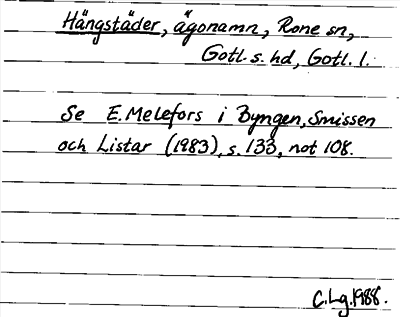 Hängstäder, ägonamn, Rone sn,
Gotl. s. hd, Gotl. l.
Se E. Melefors i Byngen, Smissen
och Listar (1983), s. 133, not 108.
C. Lg. 1988.